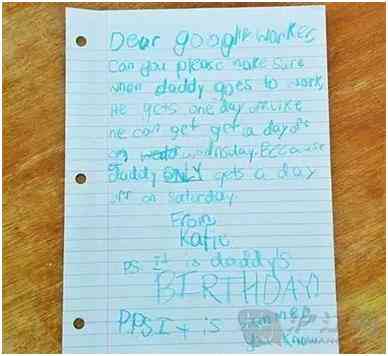 Dear google worker,
Can you please make sure
when daddy goes to work,
He gets one day off. Like
he can get get a day off
on wednesday. Because
daddy ONLY gets a day
off on saturday.
From
Katie
P.S. It is daddy's
BIRTHDAY!
P.P.S. It is summer
you know
沪江